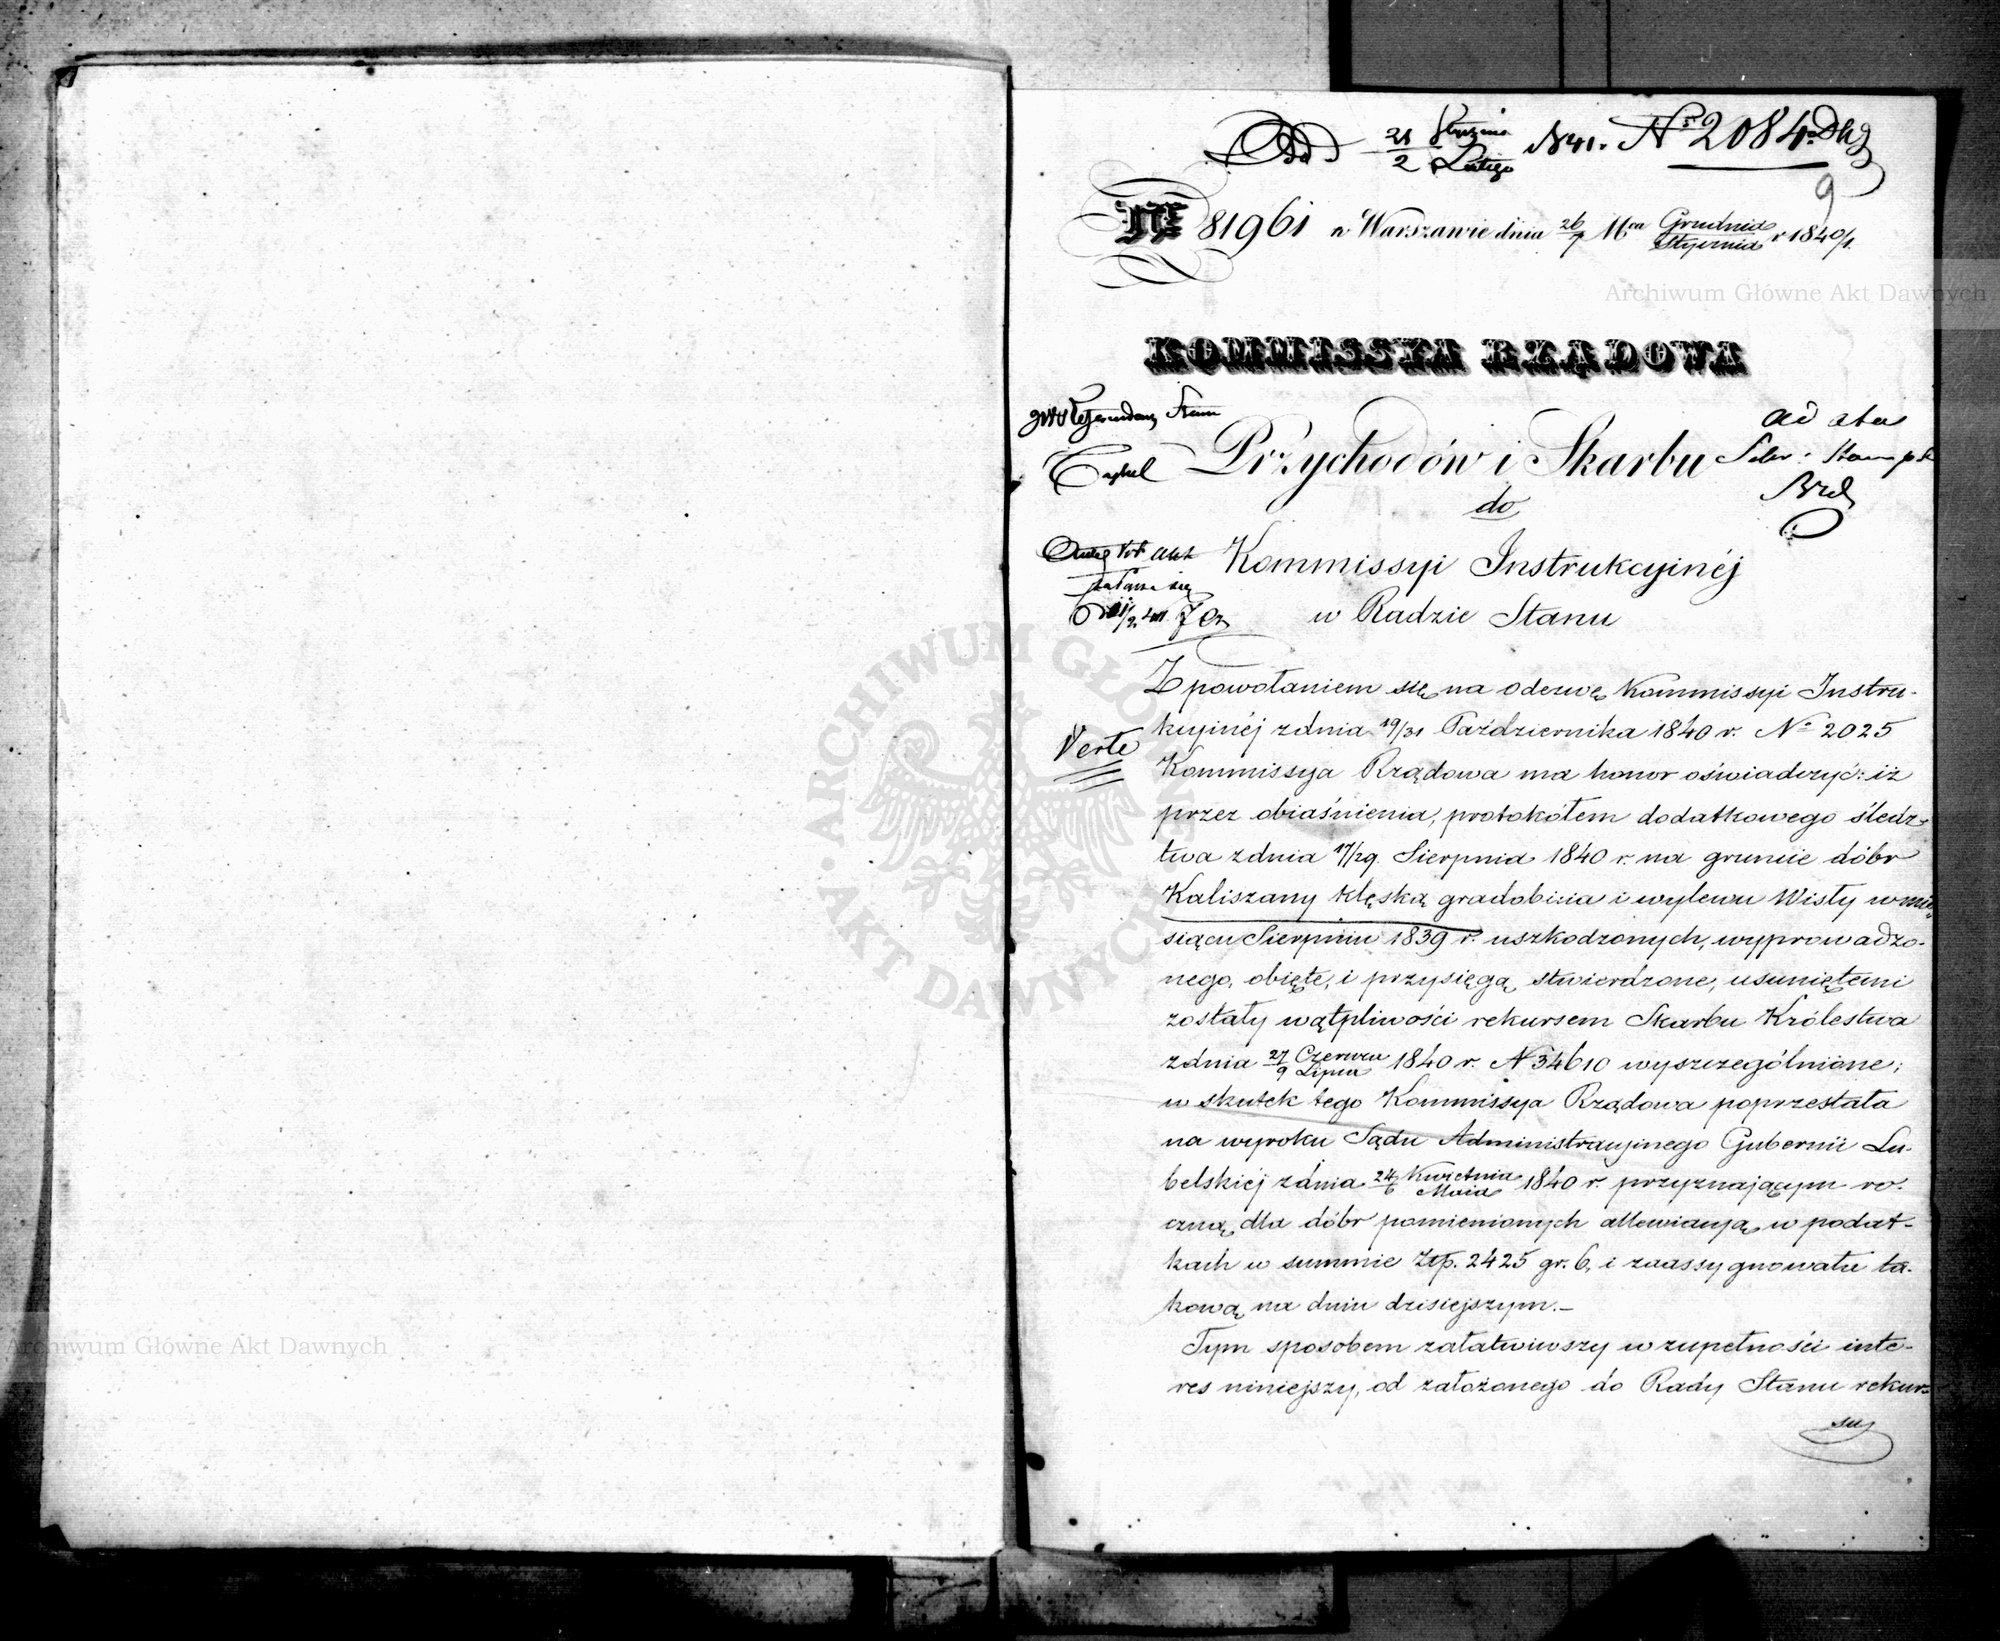 21 Stycznia
2 Lutego
1841. Nº 2084.
9
Nº 81961 w Warszawie dnia 26/7 Mca Grudnia/Stycznia r 1840/1.
Archiwum Główne Akt Dawnych
KOMMISSYA RZĄDOWA
Przychodów i Skarbu
do
Kommissyi Instrukcyinéj
w Radzie Stanu
Z powołaniem się na odezwę Kommissyi Instru-
kcyinéj z dnia 19/31 Października 1840 r. Nº 2025
Verte
Kommissya Rządowa ma honor oświadczyć: iż
przez obiaśnienia, protokółem dodatkowego śledz-
twa z dnia 17/29. Sierpnia 1840 r. na gruncie dóbr
Kaliszany klęską gradobicia i wylewu Wisły w mie-
siącu Sierpniu 1839 r. uszkodzonych, wyprowadzo-
nego, obięte, i przysięgą stwierdzone, usuniętemi
zostały wątpliwości rekursem Skarbu Królestwa
z dnia 27 Czerwca/9 Lipca 1840 r. N 34610 wyszczególnione;
w skutek tego Kommissya Rządowa poprzestała
na wyroku Sądu Administracyjnego Gubernii Lu-
belskiéj z dnia 24 Kwietnia/6 Maia 1840 r. przyznającym ro-
czną dla dóbr pomienionych allewiacyą w podat-
kach w summie Złp. 2425 gr. 6, i zaassygnowała ta-
kową na dniu dzisiejszym.-
Tym sposobem załatwiwszy w zupełności inte-
res niniejszy, od założonego do Rady Stanu rekur-
su
Archiwum Główne Akt Dawnych
ARCHIWUM GŁÓWNE AKT DAWNYCH